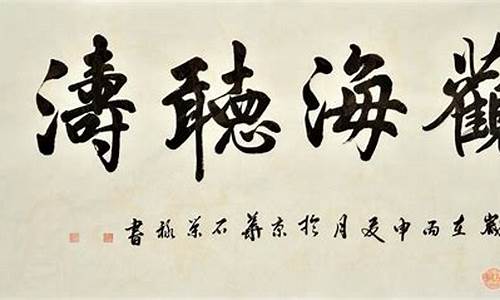 觀海聽濤
歲在丙申夏月於京華石荣禄書